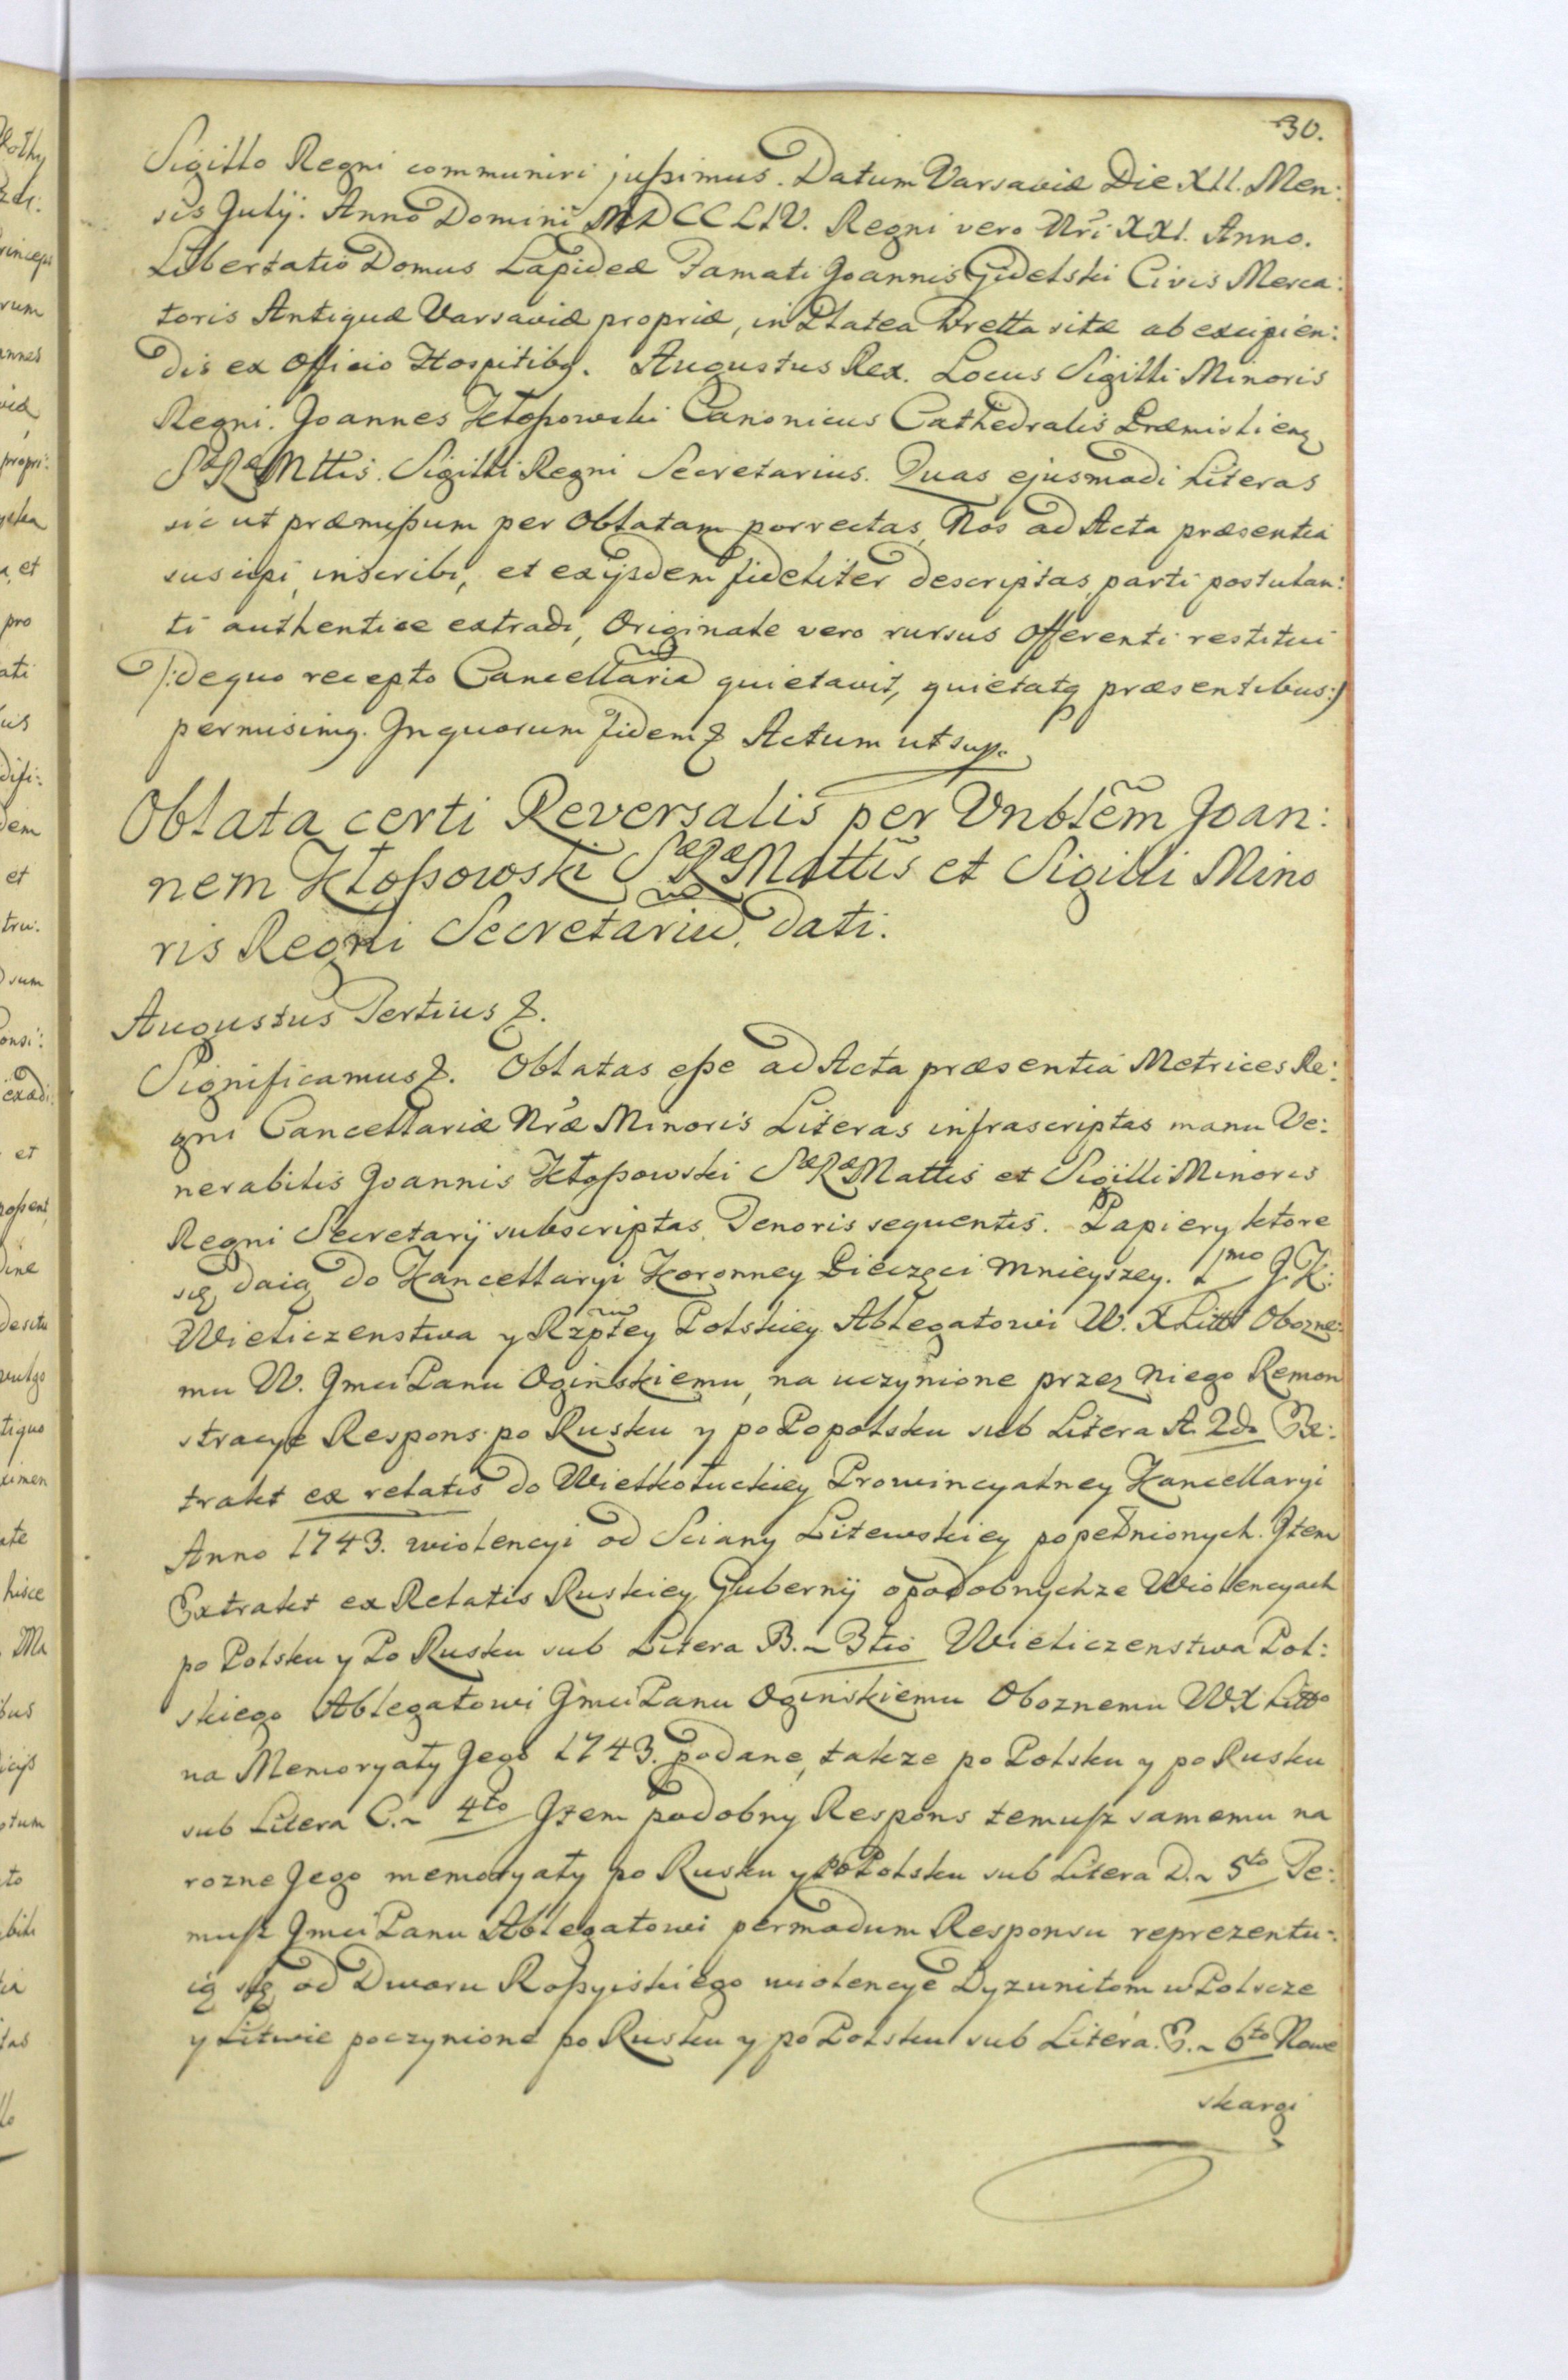 30.
Sigillo Regni communiri jußimus. Datum Varsaviæ Die XII. Men:
sis Julij. Anno Domini MDCCLIV. Regni vero Nri XXI. Anno.
Libertatio Domus Lapideæ Famati Joannis Gidelski Civis Merca:
toris Antiquæ Varsaviæ propriæ, in Platea Fretta sitæ ab excipien:
dis ex Officio Hospitibq. Augustus Rex. Locus Sigilli Minoris
Regni. Joannes Kłoßowski Canonicus Cathedralis Præmislienq
SæRæMttis. Sigilli Regni Secretarius. Quas ejusmodi Literas
sic ut præmißum per Oblatam porrectas, Nos ad Acta præsentia
suscipi, inscribi, et exijsdem fideliter descriptas, parti postulan:
ti authentice extradi, Originale vero rursus Offerenti restitui
/:dequo recepto Cancellariã quietavit, quietatq præsentibus:/
permisimq. Inquorum fidem & Actum ut sup.
Oblata certi Reversalis per Vnblem Joan:
nem Kłoßowski SæRæMattis et Sigilli Mino
ris Regni Secretariũ, dati.
Augustus Tertius &.
Significamus &. Oblatas eße ad Acta præsentia Metrices Re:
gni Cancellariæ Nræ Minoris Literas infrascriptas manu Ve:
nerabilis Joannis Kłoßowski SæRæMattis et Sigilli Minoris
Regni Secretarij subscriptas, Tenoris sequentis. Papiery ktore
się daią do Kancellaryi Koronney Pieczęci mnieyszey. 1mo J.K:
Wieliczenstwa y Rzpltey Polskiey Ablegatowi W. X Litto Obozne:
mu W. Jmci Panu Oginskiemu, na uczynione przez niego Remon
stracye Respons po Rusku y po Popolsku sub Litera A. 2do Ex:
trakt ex relatis do Wielkołuckiey Prowincyalney Kancellaryi
Anno 1743. wiolencyi od Sciany Litewskiey popełnionych. Item
Extrakt ex Relatis Ruskiey Gubernij opodobnychze Wiolencyach
po Polsku y Po Rusku sub Litera B.~ 3tio Wieliczenstwa Pol:
skiego Ablegatowi Jmci Panu Oginskiemu Oboznemu WX Litto
na Memoryały Jego 1743. podane, takze po Polsku y po Rusku
sub Litera C.~ 4to Item podobny Respons temußz samemu na
rozne Jego memoryały po Rusku y Po Polsku sub Litera D.~ 5to Te:
mußz Jmci Panu Ablegatowi permodum Responsu reprezentu:
ią się od Dworu Roßyiskiego wiolencye Dyzunitom w Polscze
y Litwie poczynione po Rusku y po Polsku sub Litera. E.~ 6to Nowe
skargi